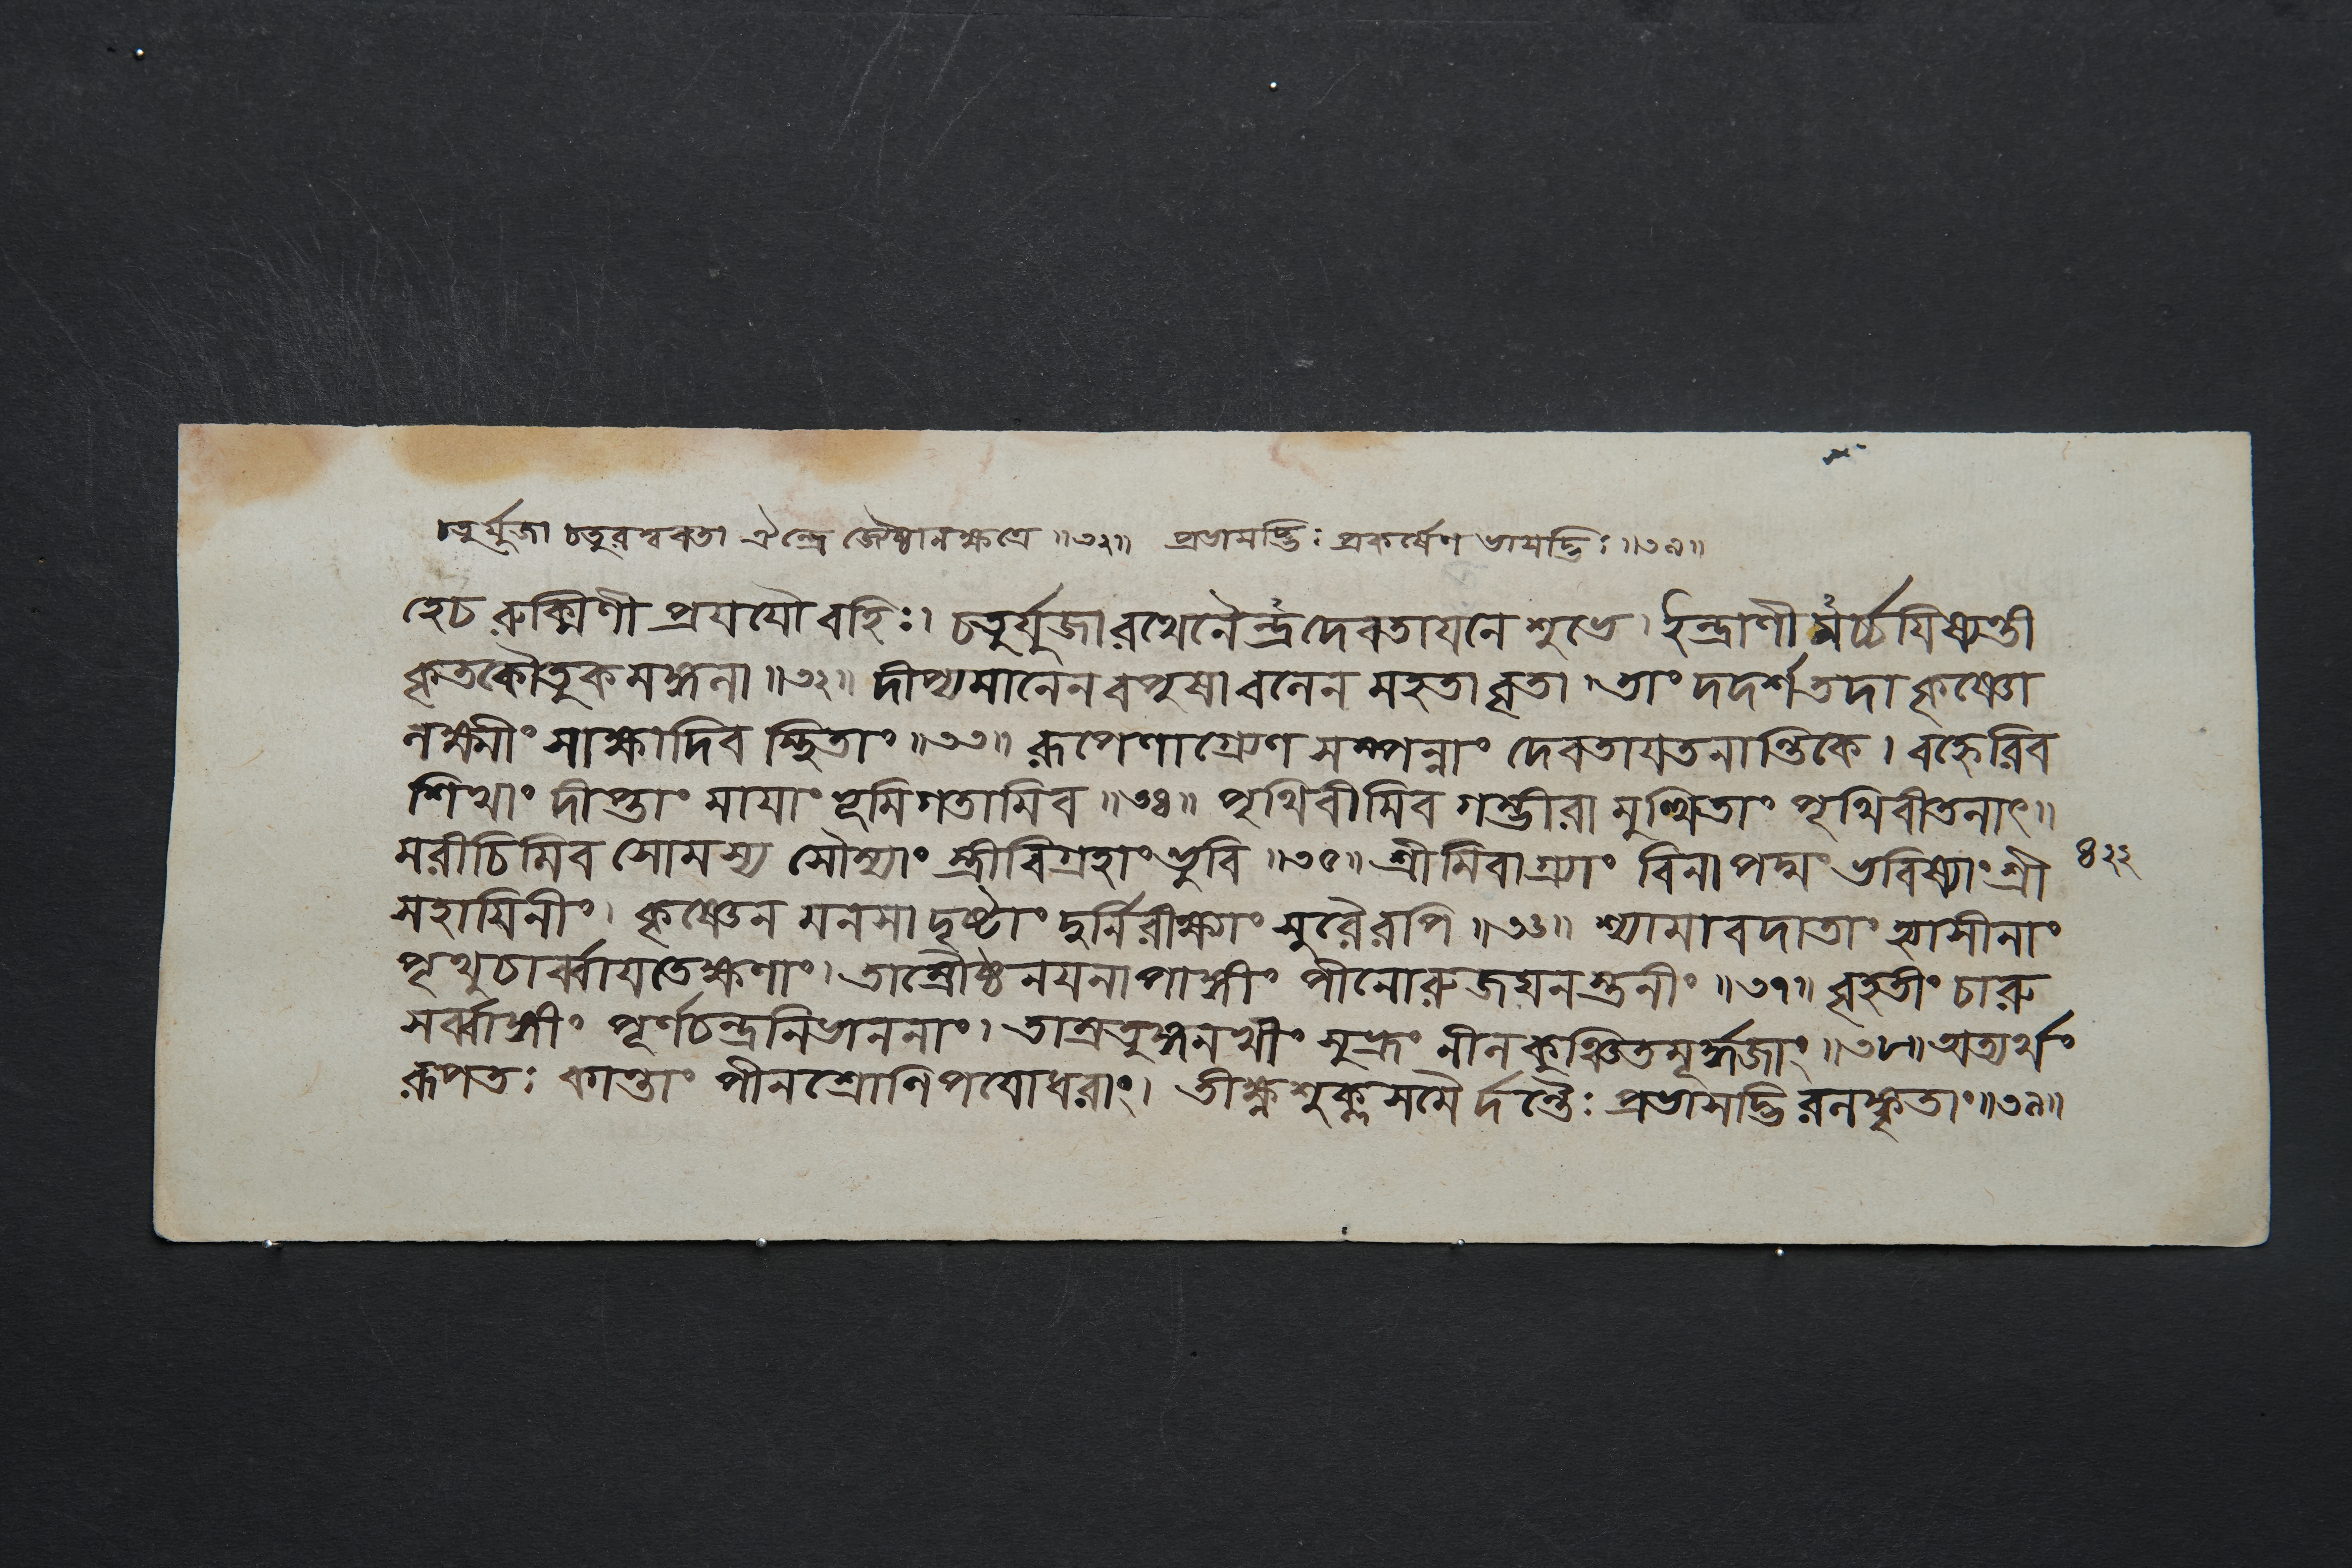 চতুর্যুজা চতুরশ্ববতা ঐন্দ্রে জ্যেষ্ঠানক্ষত্রে ॥৩২॥ প্রভাসদ্ভিঃ প্রকর্ষেণ ভাসদ্ভিঃ ॥৩৯॥
হেচ রুক্মিণী প্রযযৌ বহিঃ। চতুর্যুজা রথেনৈন্দ্রে দেবতাযনে শুভে। ইন্দ্রাণী মর্চ্চযিষ্যন্তী
কৃতকৌতুক মঙ্গলা ॥৩২॥ দীপ্যমানেন বপুষা বলেন মহতা বৃতা। তাং দদর্শ তদা কৃষ্ণো
লক্ষ্মীং সাক্ষাদিব স্থিতাং ॥৩৩॥ রূপেণাগ্র্যেণ সম্পন্নাং দেবতাযতনান্তিকে। বহ্নেরিব
শিখাং দীপ্তাং মাযাং ভূমিগতামিব ॥৩৪॥ পৃথিবীমিব গম্ভীরা মুত্থিতাং পৃথিবীতলাৎ॥
মরীচিমিব সোমস্য সৌম্যাং স্ত্রীবিগ্রহাং ভুবি ॥৩৫॥ শ্রীমিবাগ্র্যাং বিনা পদ্মং ভবিষ্যাং শ্রী ৪২২
সহাযিনীং। কৃষ্ণেন মনসা দৃষ্টাং দুর্নিরীক্ষ্যাং সুরৈরপি ॥৩৬॥ শ্যামাবদাতাং হ্যাসীনাং
পৃথুচার্ব্বাযতেক্ষণাং। তাম্রৌষ্ঠনযনাপাঙ্গীং পীনোরুজঘনস্তনীং ॥৩৭॥ বৃহতীং চারু
সর্ব্বাঙ্গীং পূর্ণচন্দ্রনিভাননাং। তাম্রতুঙ্গনখীং সুভ্রূং নীলকুঞ্চিতমূর্দ্ধজাং ॥৩৮॥ অত্যর্থং
রূপতঃ কান্তাং পীনশ্রোণিপযোধরাং। তীক্ষ্ণশুক্লসমৈ র্দন্তৈঃ প্রভাসদ্ভি রলঙ্কৃতাং॥৩৯॥